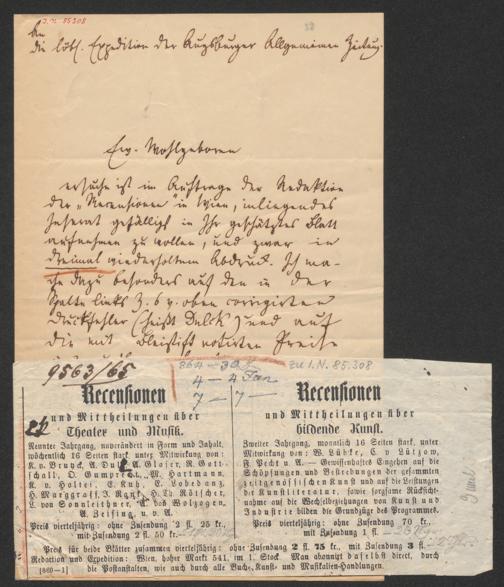 J.N. 85.308
An
die löbl. Expedition der Augsburger Allgemeinen Zeitung.
Ew. Wohlgeboren
ersuche ich im Auftrage der Redaktion
der „Recensionen“ in Wien, inliegendes
Inserat gefälligst in Ihr geschätztes Blatt
aufnehmen zu wollen, und zwar in
dreimal wiederholtem Abdruck. Ich ma-
che dazu besonders auf den in der
Spalte links Z. 6 v. oben corrigirten
Druckfehler (heißt Dulk) und auf
die mit Bleistift notirten Preise
9563/65
364 — 30
4 — 4 Jan
7 — 7 —
zu I.N. 85.308
Recensionen
und Mittheilungen über
Theater und Musik.
Neunter Jahrgang, unverändert in Form und Inhalt,
wöchentlich 16 Seiten stark, unter Mitwirkung von:
K. v. Bruyck, A. Dulk, A. Glaser, R. Gott-
schall, O. Gumprecht, M. Hartmann,
K. v. Holtei, E. Kuh, E. Lobedanz,
H. Marggraff, J. Rank, H. Th. Rötscher,
L. von Sonnleithner, A. von Wolzogen,
A. Zeising u. s. w.
Preis vierteljährig: ohne Zusendung 2 fl. 25 kr.,
mit Zusendung 2 fl. 50 kr.
Recensionen
und Mittheilungen über
bildende Kunst.
Zweiter Jahrgang, monatlich 16 Seiten stark, unter
Mitwirkung von: W. Lübke, C. v. Lützow,
F. Pecht u. A. — Gewissenhaftes Eingehen auf die
Schöpfungen und Bestrebungen der gesammten
zeitgenössischen Kunst und auf die Leistungen
die Kunstliteratur, sowie sorgsame Rücksicht-
nahme auf die Wechselbeziehungen von Kunst und
Industrie bilden die Grundzüge des Programmes.
Preis vierteljährig: ohne Zusendung 70 kr.,
mit Zusendung 1 fl.
Preis für beide Blätter zusammen vierteljährig: ohne Zusendung 2 fl. 75 kr., mit Zusendung 3 fl.
Redaction und Expedition: Wien, hoher Markt 541, im 1. Stock. Man abonnirt daselbst direct, durch
[860—1] die Postanstalten, wie auch durch alle Buch-, Kunst- und Musikalien-Handlungen.